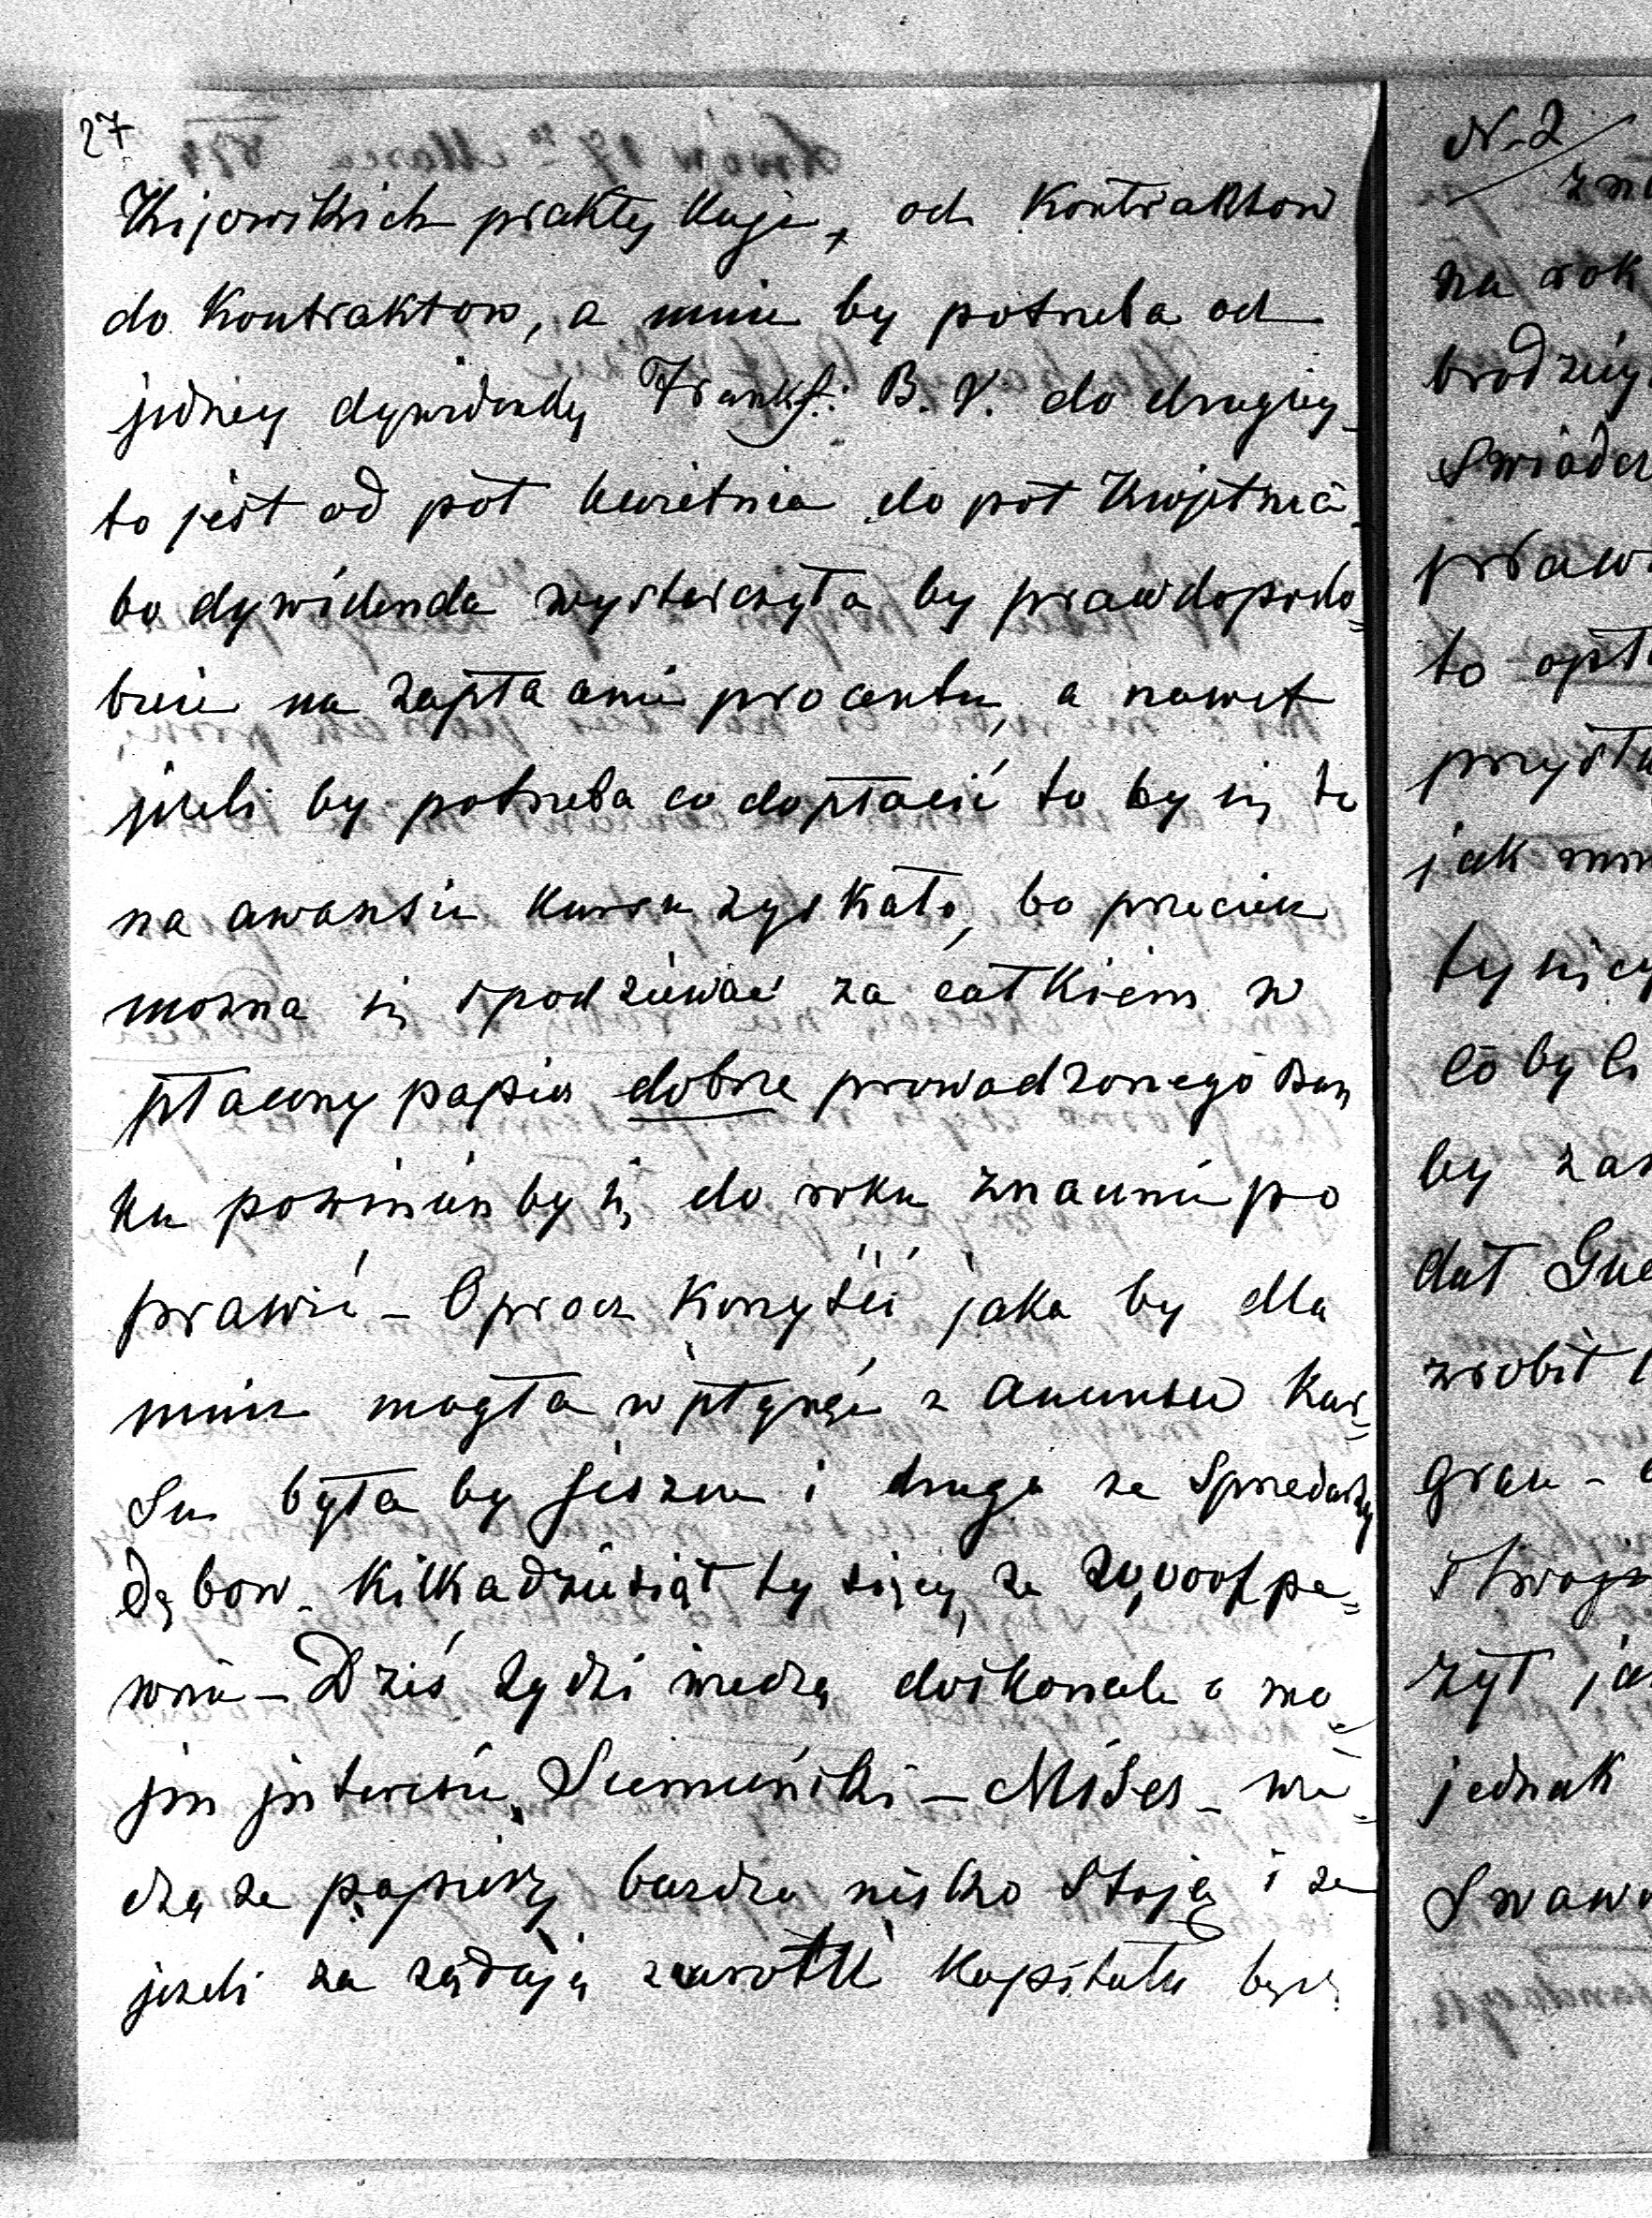 27
Kijowskich praktykuje, od Kontraktow
do Kontraktow, a mnie by potrzeba od
jedney dywidendy Frankf: B. V. do drugiey
to jest od pół kwietnia do pół Kwietnia
bo dywidenda wystarczyła by prawdopodo=
bnie na zapłacenie procentu, a nawet
jeżeli by potrzeba co dopłacić to by się to
na awansie kursu zyskało, bo przeciek
można się spodziewać za całkiem w
płacony papier dobrze prowadzonego Ban
ku powinien by się do roku znacznie po
prawić – Oprocz Korzyści jaka by dla
mnie mogła wpłynąć z awansu Kur=
su była by jeszcze i druga ze Sprzedarzy
Dębow – Kilkadziesiąt tysięcy, za 20,000 f pe=
wnie – Dziś żydzi wiedzą doskonale o mo=
jem interesie, Siemieński – Mises – wie=
dzą ze papiery bardzo nisko stoją i ze
jeżeli za żądają zwrotu Kapitału będę
N-2
na rok
prawi
to opł
przysta
jak
by
dał
zrobił
grau –
żył ja
jednak
Swawo